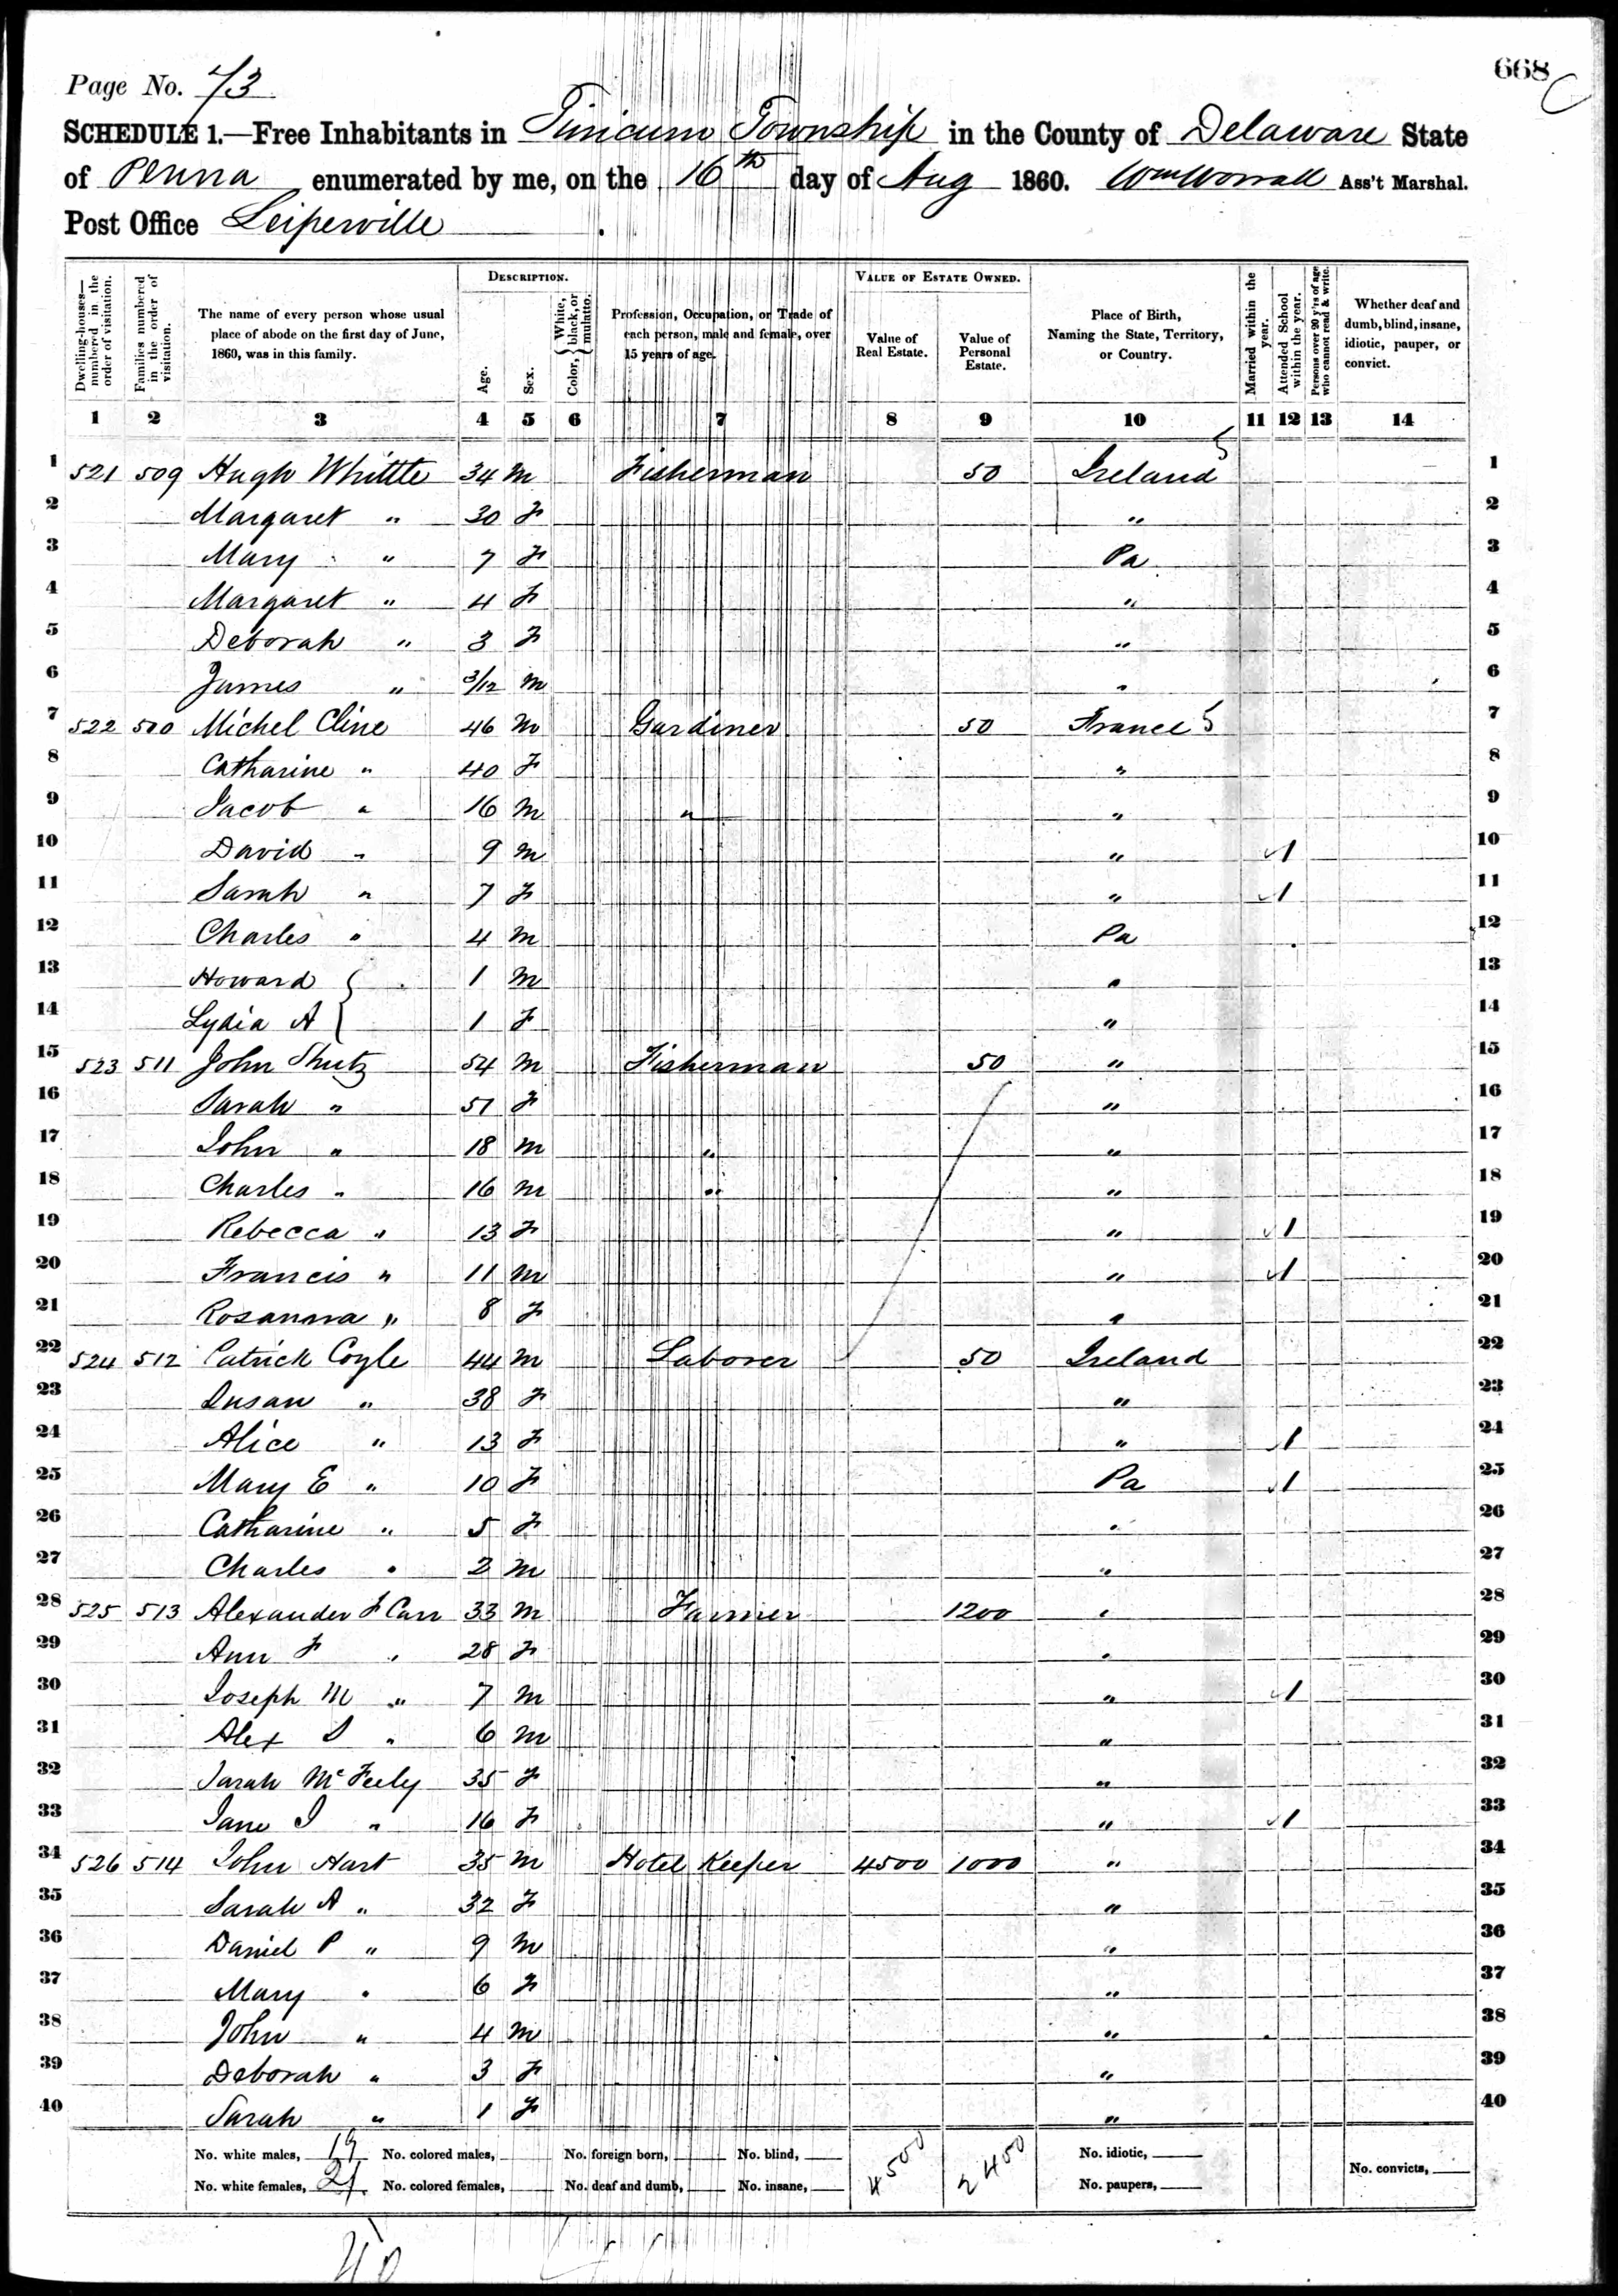 668
Page No. 73
SCHEDULE 1.—Free Inhabitants in Tinicum Township in the County of Delaware State
of Penna enumerated by me, on the 16th day of Aug 1860. Wm Worrall Ass't Marshal.
Post Office Leiperville
Dwelling-houses—numbered in the order of visitation.
Families numbered in the order of visitation.
The name of every person whose usual place of abode on the first day of June, 1860, was in this family.
DESCRIPTION.
Age.
Sex.
Color, { White, black, or mulatto.
Profession, Occupation, or Trade of each person, male and female, over 15 years of age.
VALUE OF ESTATE OWNED.
Value of Real Estate.
Value of Personal Estate.
Place of Birth, Naming the State, Territory, or Country.
Married within the year.
Attended School within the year.
Persons over 20 y'rs of age who cannot read & write.
Whether deaf and dumb, blind, insane, idiotic, pauper, or convict.
1 2 3 4 5 6 7 8 9 10 11 12 13 14
1 521 509 Hugh Whittle 34 M Fisherman 50 Ireland 1
2 Margaret " 30 F " 2
3 Mary " 7 F Pa 3
4 Margaret " 4 F " 4
5 Deborah " 3 F " 5
6 James " 3/12 M " 6
7 522 510 Michel Cline 46 M Gardiner 50 France 7
8 Catharine " 40 F " 8
9 Jacob " 16 M " " 9
10 David " 9 M " 1 10
11 Sarah " 7 F " 1 11
12 Charles " 4 M Pa 12
13 Howard } " 1 M " 13
14 Lydia A } 1 F " 14
15 523 511 John Shutz 54 M Fisherman 50 " 15
16 Sarah " 51 F " 16
17 John " 18 M " " 17
18 Charles " 16 M " " 18
19 Rebecca " 13 F " 1 19
20 Francis " 11 M " 1 20
21 Rosanna " 8 F " 21
22 524 512 Patrick Coyle 44 M Laborer 50 Ireland 22
23 Susan " 38 F " 23
24 Alice " 13 F " 1 24
25 Mary E " 10 F Pa 1 25
26 Catharine " 5 F " 26
27 Charles " 2 M " 27
28 525 513 Alexander F Carr 33 M Farmer 1200 " 28
29 Ann F " 28 F " 29
30 Joseph M " 7 M " 1 30
31 Alex S " 6 M " 31
32 Sarah McFeely 35 F " 32
33 Jane I " 16 F " 1 33
34 526 514 John Hart 35 M Hotel Keeper 4500 1000 " 34
35 Sarah A " 32 F " 35
36 Daniel P " 9 M " 36
37 Mary " 6 F " 37
38 John " 4 M " 38
39 Deborah " 3 F " 39
40 Sarah " 1 F " 40
No. white males, 19 No. colored males, No. foreign born, No. blind, 4500 2450 No. idiotic,
No. white females, 21 No. colored females, No. deaf and dumb, No. insane, No. paupers, No. convicts,
40